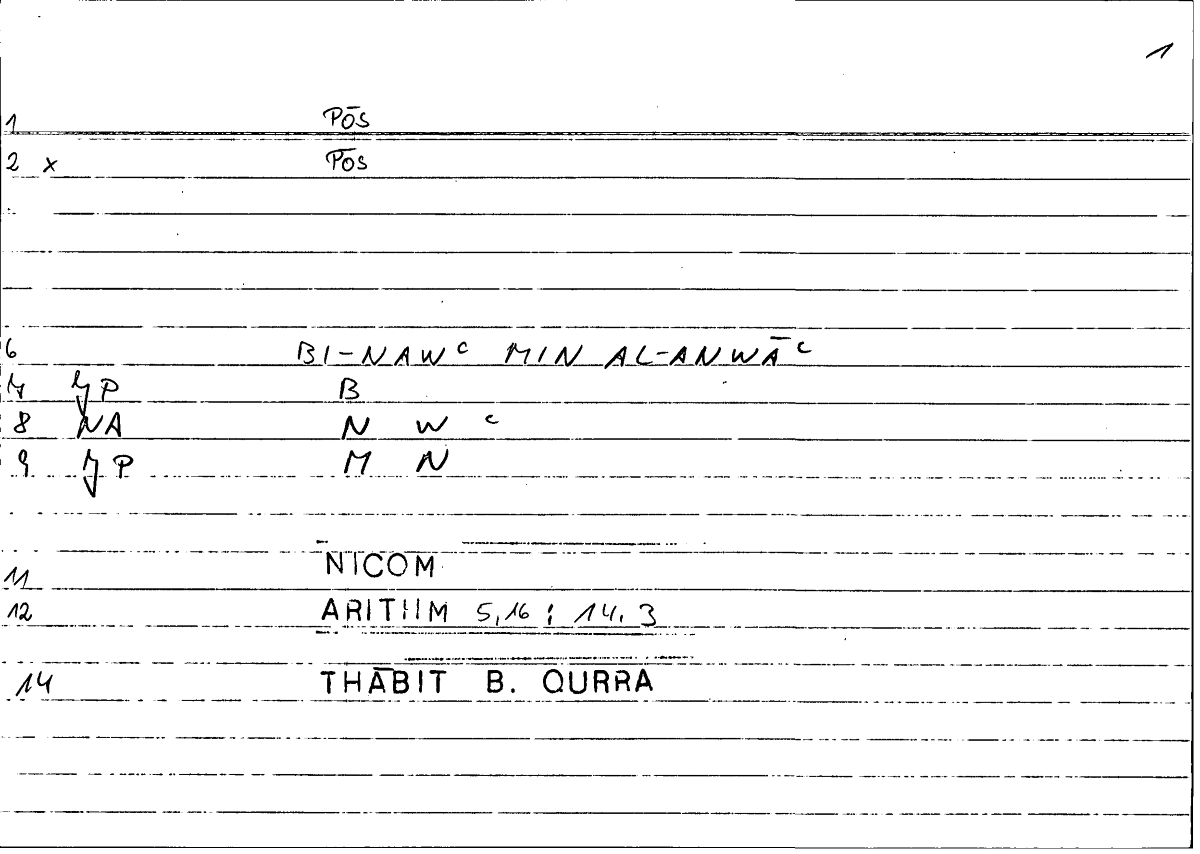 1
1 PŌS
2 x PŌS
6 BI-NAWᶜ MIN AL-ANWĀᶜ
7 B
8 NA N W ᶜ
9 M N
11 NICOM
12 ARITHM 5,16; 14,3
14 THĀBIT B. QURRA